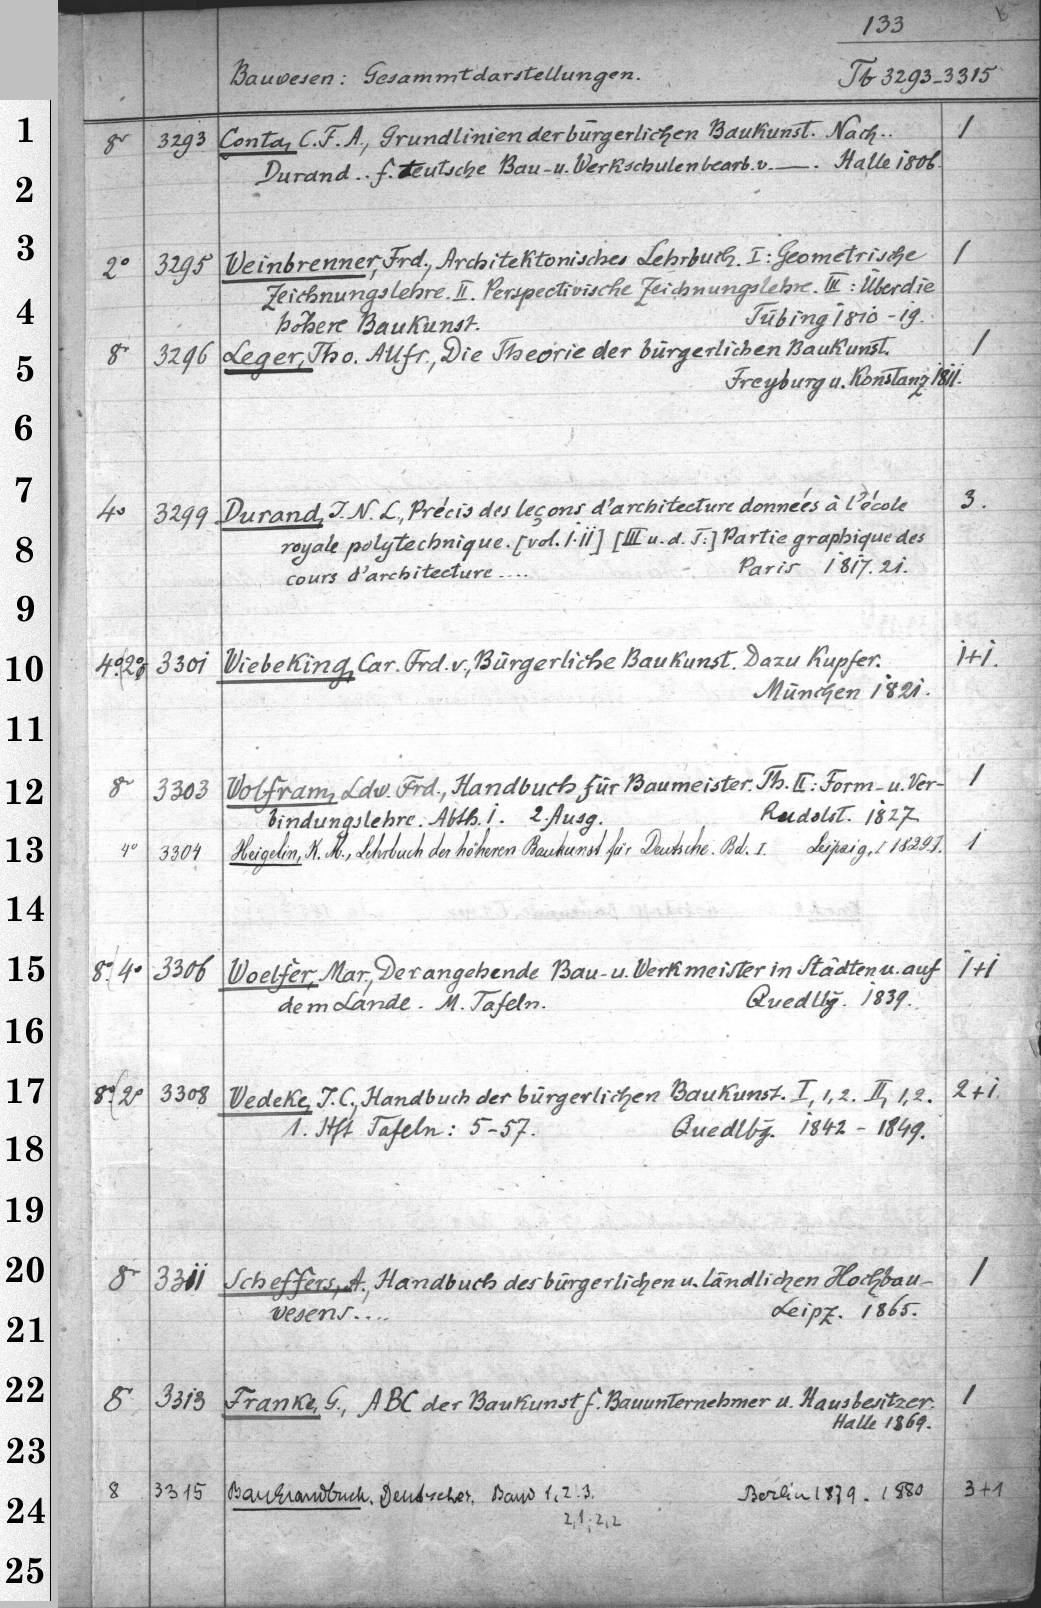 133
Bauwesen: Gesammtdarstellungen. Tb 3293-3315
1
8° 3293 Conta, C. F. A., Grundlinien der bürgerlichen Baukunst. Nach.. 1
2
Durand.. f. teutsche Bau- u. Werkschulen bearb. v. —. Halle 1806.
3
2° 3295 Weinbrenner, Frd., Architektonisches Lehrbuch. I: Geometrische 1
Zeichnungslehre. II. Perspectivische Zeichnungslehre. III: Über die
4
höhere Baukunst. Tübing 1810-19.
5
8° 3296 Leger, Tho. Alfr., Die Theorie der bürgerlichen Baukunst. 1
Freyburg u. Konstanz 1811.
6
7
4° 3299 Durand, J. N. L., Précis des leçons d'architecture données à l'école 3.
8
royale polytechnique. [vol. I.II] [III u. d. T.:] Partie graphique des
cours d'architecture.... Paris 1817. 21.
9
10
4°.(2°) 3301 Wiebeking, Car. Frd. v., Bürgerliche Baukunst. Dazu Kupfer. 1+1.
München 1821.
11
12
8° 3303 Wolfram, Ldw. Frd., Handbuch für Baumeister. Th. II: Form- u. Ver- 1
bindungslehre. Abth. 1. 2 Ausg. Rudolst. 1827
13
4° 3304 Heigelin, K. M., Lehrbuch der höheren Baukunst für Deutsche. Bd. I. Leipzig, [1829]. 1
14
15
8°.(4° 3306 Woelfer, Mar., Der angehende Bau- u. Werkmeister in Städten u. auf 1+1
dem Lande. M. Tafeln. Quedlbg. 1839.
16
17
8°(2° 3308 Wedeke, J. C., Handbuch der bürgerlichen Baukunst. I, 1,2. II, 1,2. 2+1
18
1. Hft Tafeln: 5-57. Quedlbg. 1842 - 1849.
19
20
8° 3311 Scheffers, A., Handbuch des bürgerlichen u. ländlichen Hochbau- 1
21
wesens.... Leipz. 1865.
22
8° 3313 Franke, G., ABC der Baukunst f. Bauunternehmer u. Hausbesitzer. 1
Halle 1869.
23
24
8 3315 Bauhandbuch, Deutsches. Band 1, 2. 3. Berlin 1879. 1880 3+1
2,1; 2,2
25